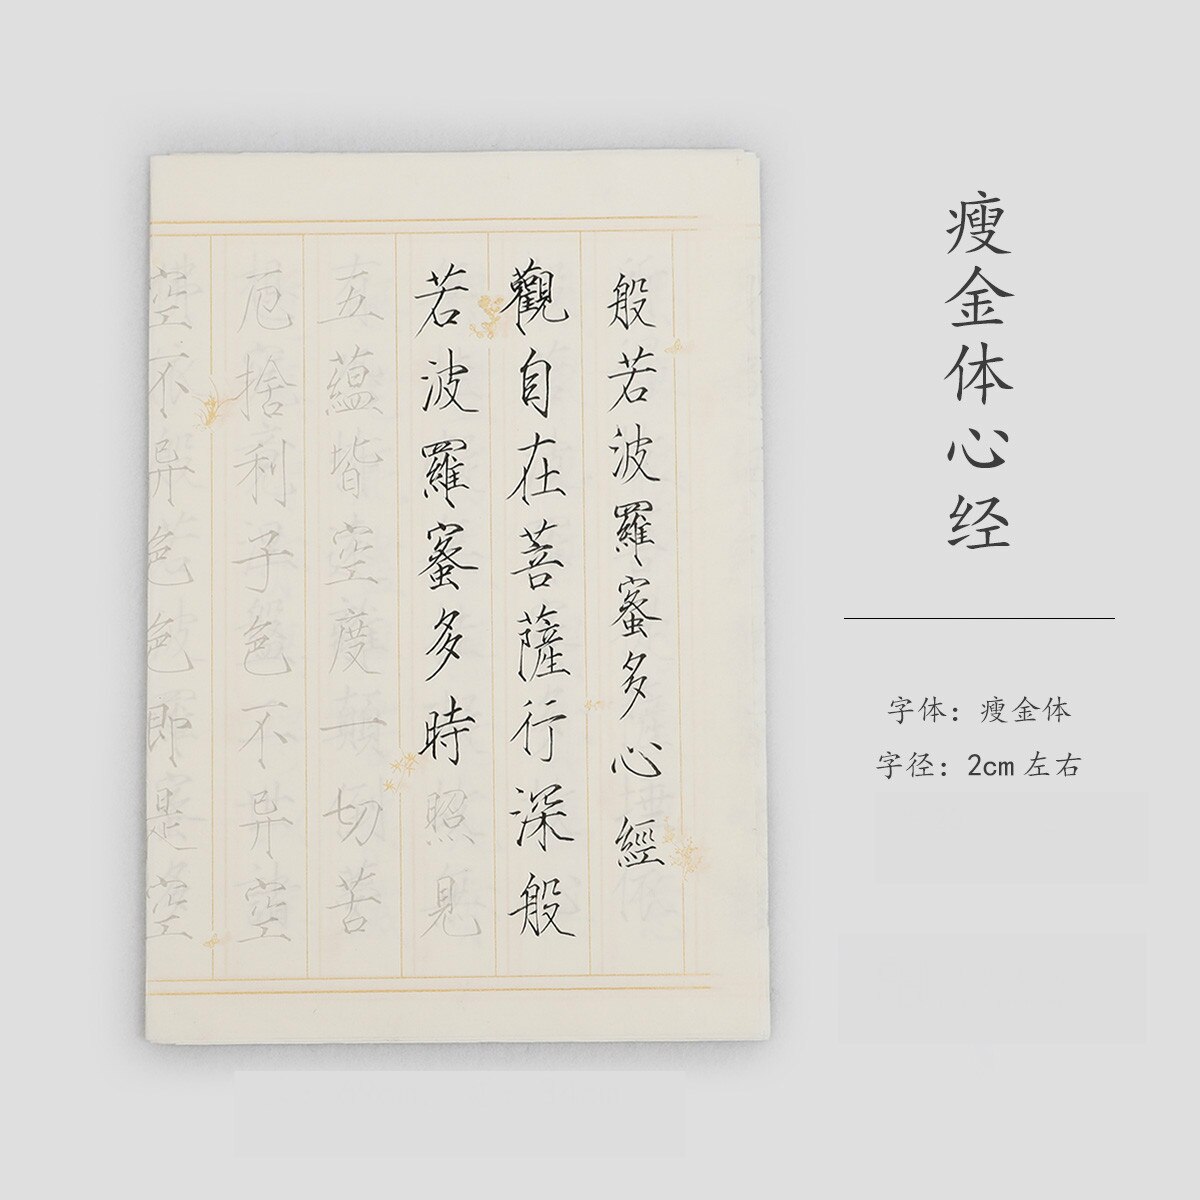 瘦金体心经
字体：瘦金体
字径：2cm左右
般若波羅蜜多心經
觀自在菩薩行深般
若波羅蜜多時照見
五蘊皆空度一切苦
厄捨利子色不异空
空不异色色即是空